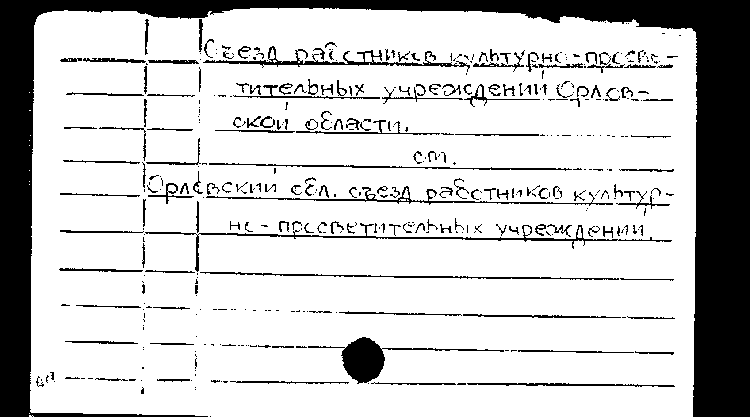 Съезд работников культурно-просве-
тительных учреждений Орлов-
ской области.
см.
Орловский обл. съезд работников культур-
но-просветительных учреждений.